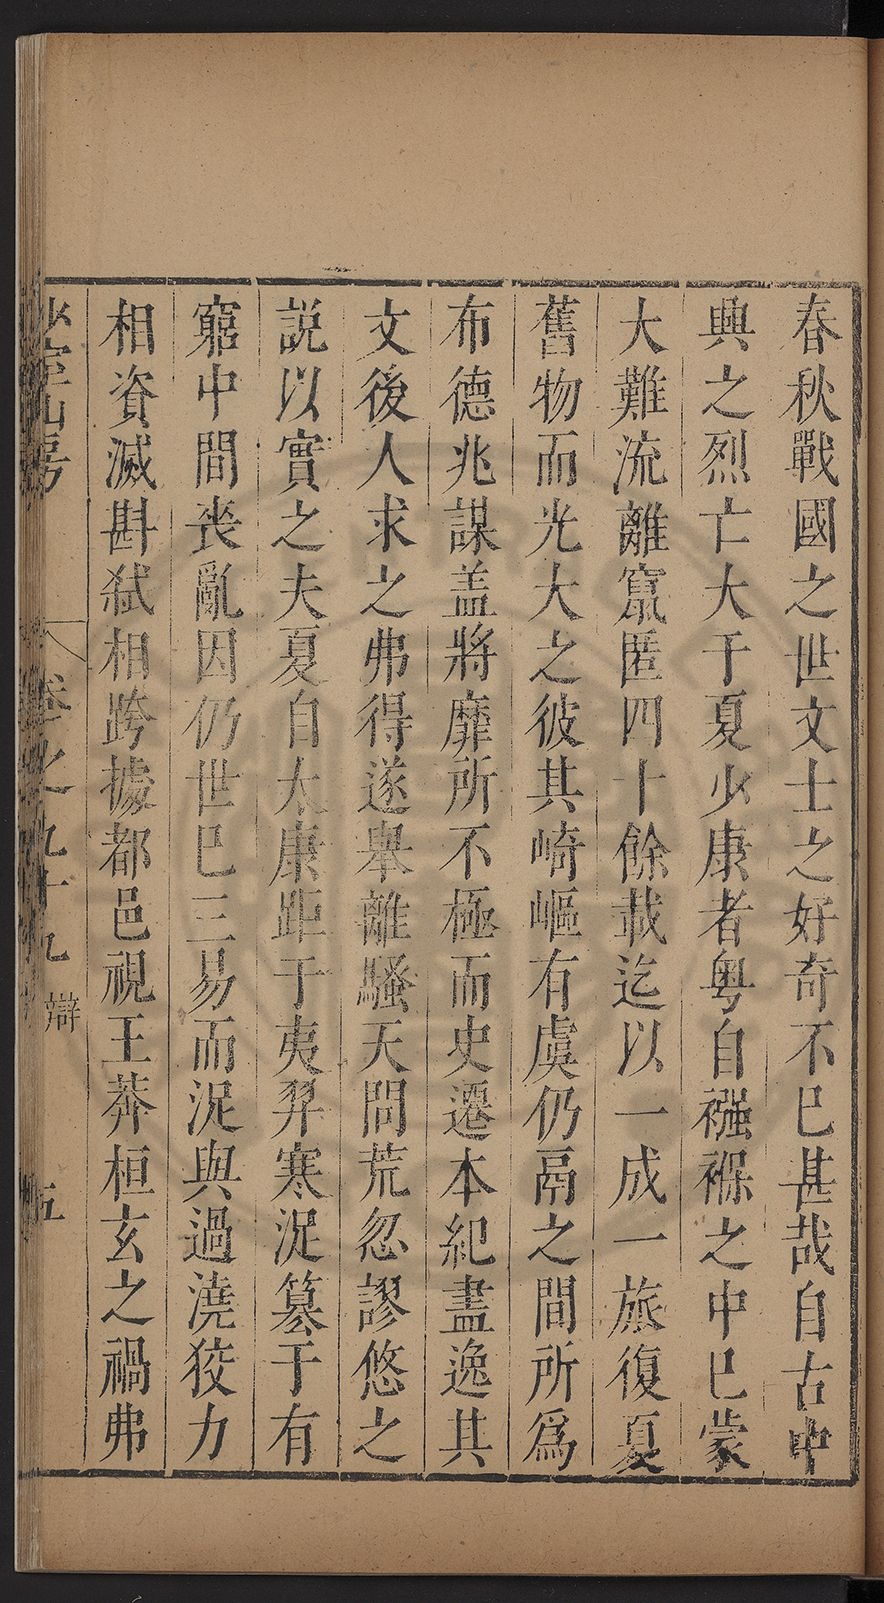 春秋戰國之世文士之好奇不巳甚哉自古中
興之烈亡大于夏少康者粤自襁褓之中巳蒙
大難流離竄匿四十餘載迄以一成一旅復夏
舊物而光大之彼其崎嶇有虞仍鬲之間所爲
布德兆謀盖將靡所不極而史遷本紀盡逸其
文後人求之弗得遂舉離騷天問荒忽謬悠之
説以實之夫夏自太康距于夷羿寒浞篡于有
窮中間喪亂因仍世巳三易而浞與過澆狡力
相資滅斟弑相跨據都邑視王莽桓玄之禍弗
山房
卷之九十九
辯
五